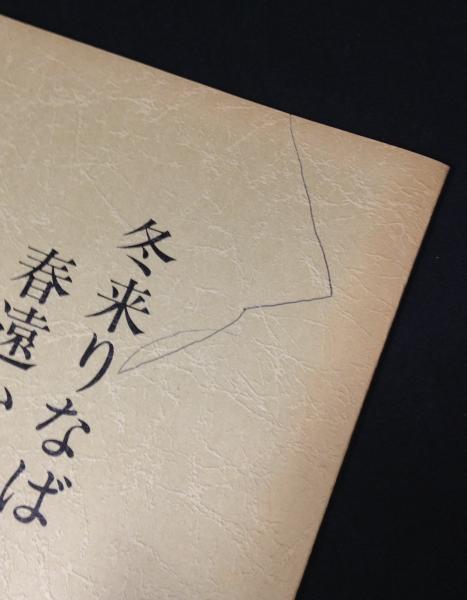 冬来りなば
春遠い